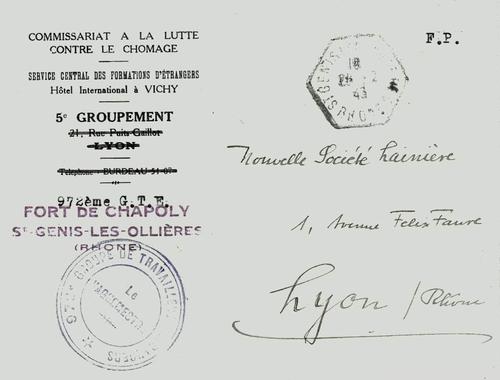 COMMISSARIAT A LA LUTTE
CONTRE LE CHOMAGE
SERVICE CENTRAL DES FORMATIONS D'ÉTRANGERS
Hôtel International à VICHY
5e GROUPEMENT
21, Rue Puits Gaillot
LYON
Téléphone : BURDEAU 51-07
972ème G.T.E.
FORT DE CHAPOLY
St-GENIS-LES-OLLIÈRES
(RHÔNE)
GROUPE DE TRAVAILLEURS
Le
F.P.
18
43
RHONE
Nouvelle Société Lainière
1, Avenue Felix Faure
Lyon / Rhône